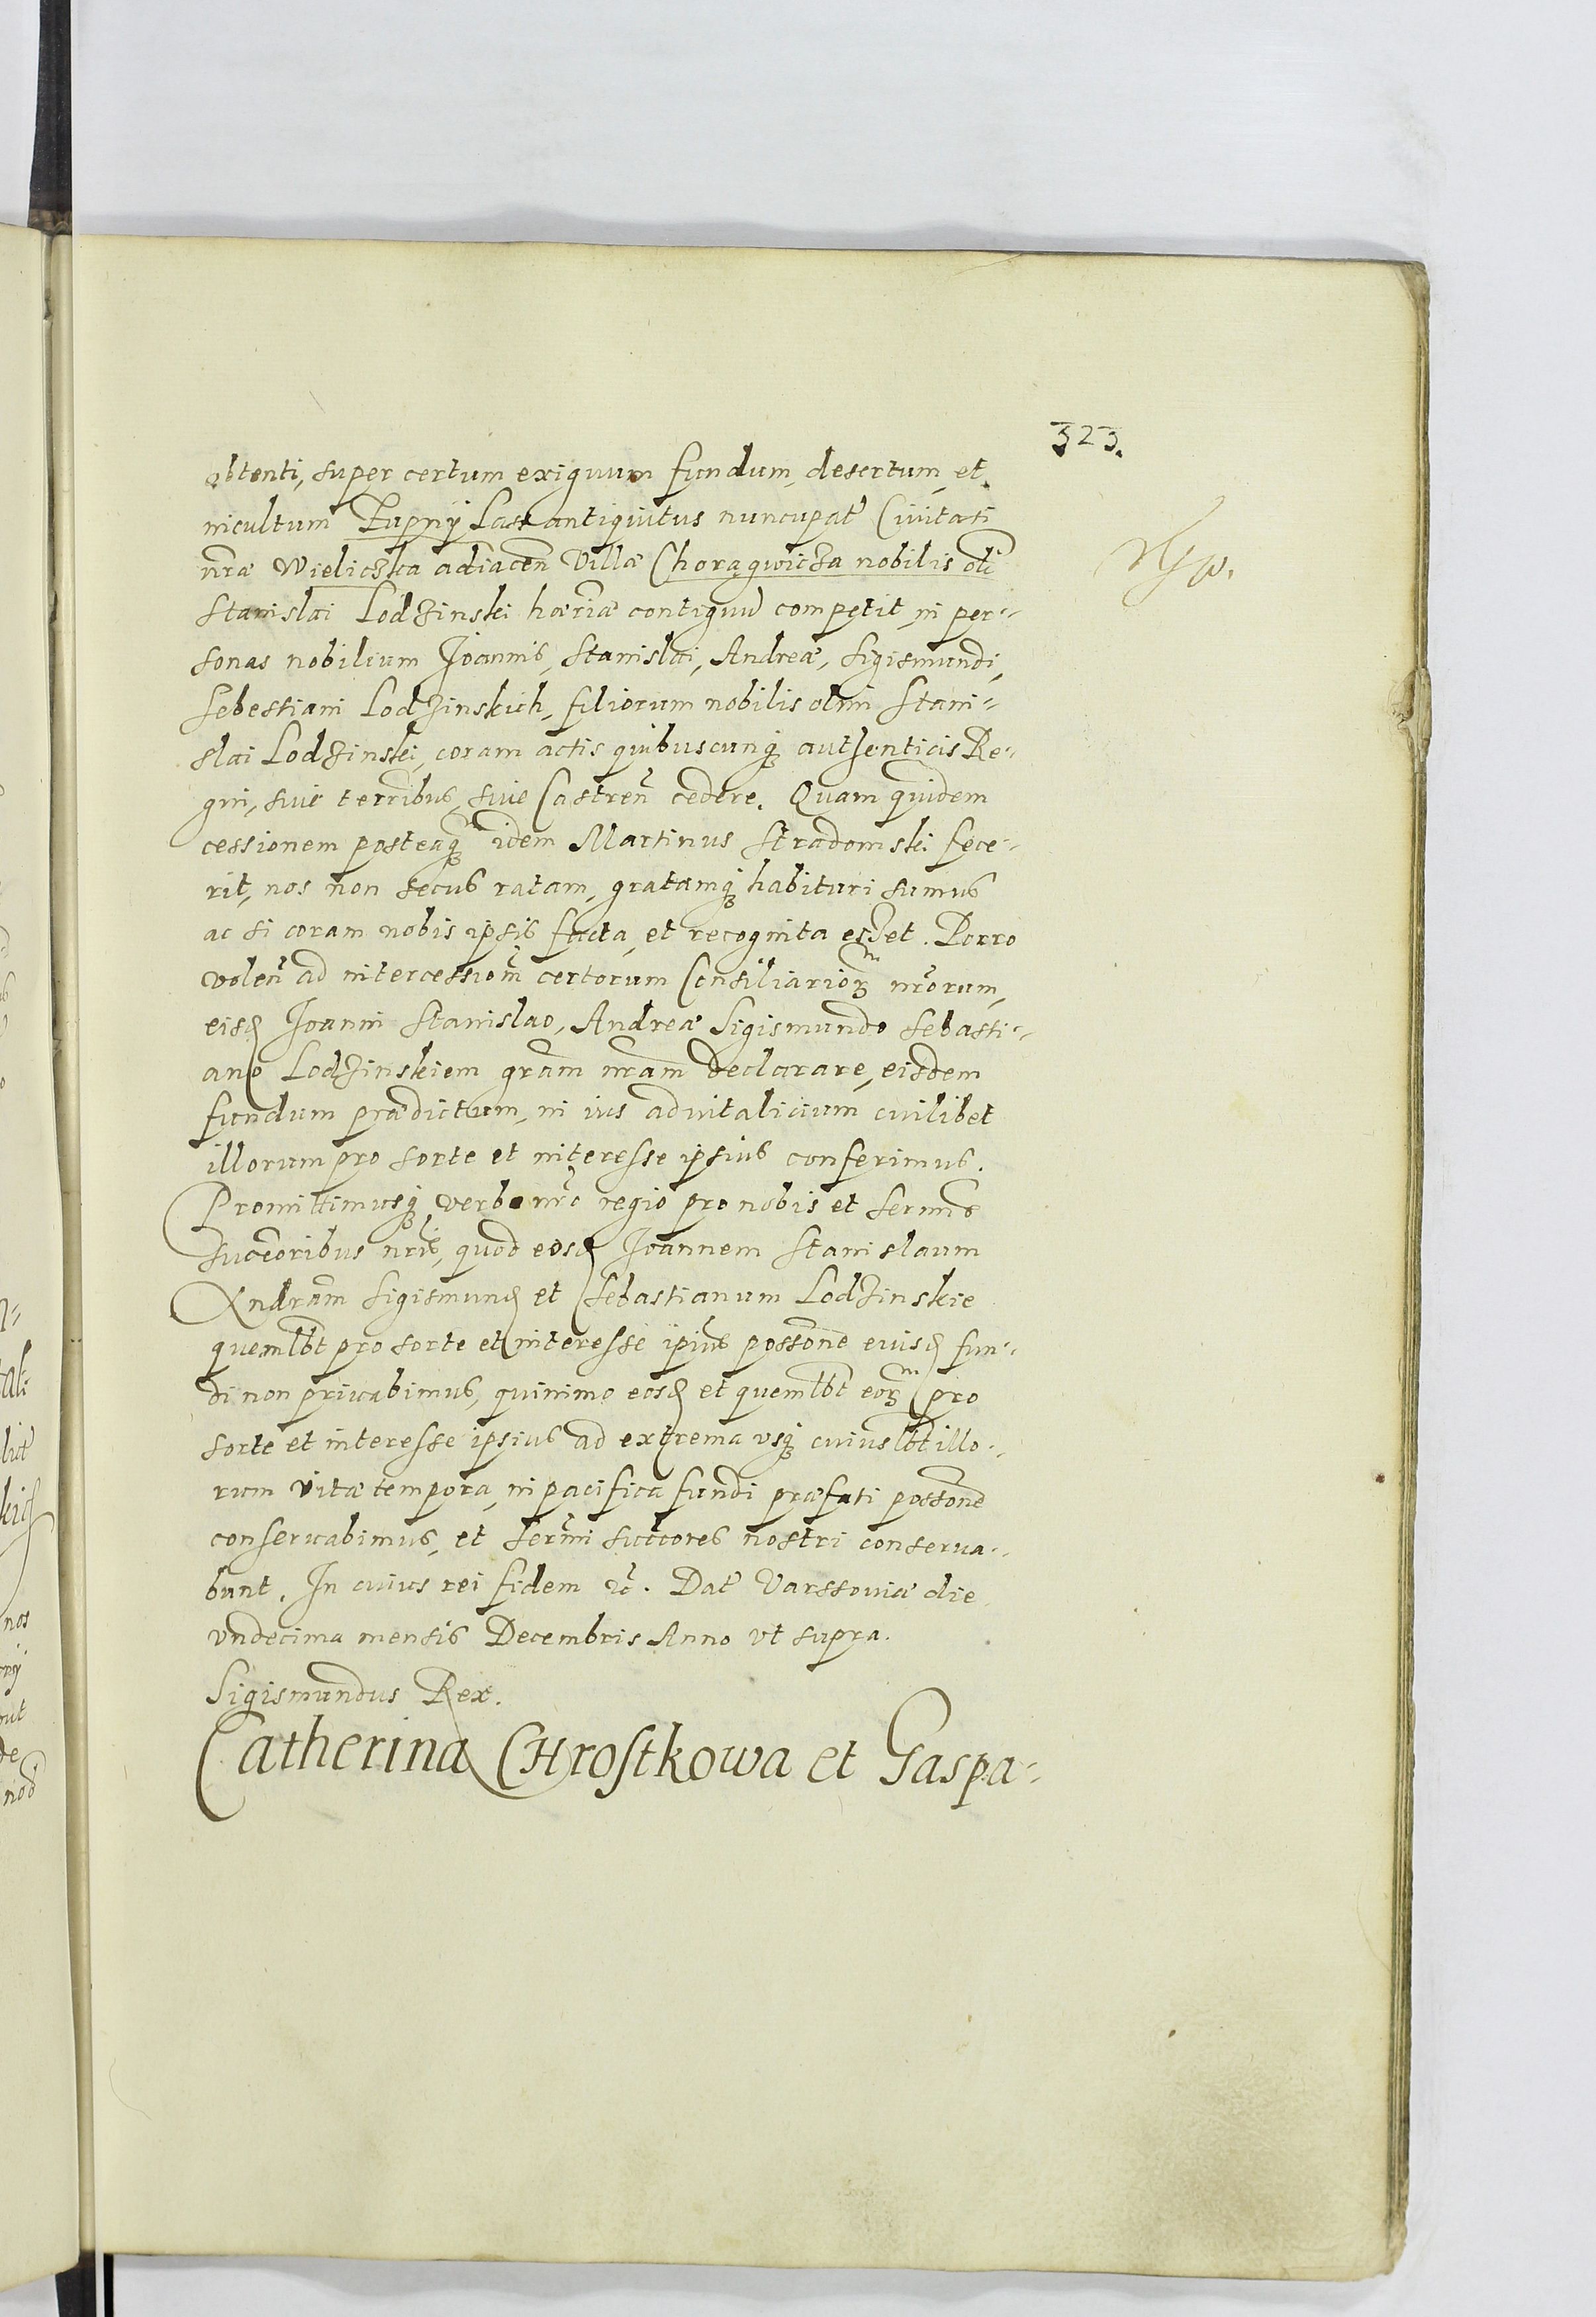 323.
obtenti, super certum exiguum fundum, desertum, et
incultum Zupny Last antiquitus nuncupat Civitati
nrae Wieliczka adiacen Villae Chorągwicza nobilis oli
Stanislai Lodzinski haeriae contiguu competit, in per-
sonas nobilium Joannis, Stanislai, Andreae, Sigismundi,
Sebestiani Lodzinskich, filiorum nobilis olim Stani-
slai Lodzinski, coram actis quibuscunq authenticis Re-
gni, sive terribus, sive Castren cedere. Quam quidem
cessionem posteaq idem Martinus Stradomski fece-
rit, nos non secus ratam, gratamq habituri sumus
ac si coram nobis ipsis facta, et recognita esset. Porro
volen ad intercessiom certorum Consiliarior nrorum,
eisd Joanni Stanislao, Andreae Sigismundo Sebasti-
ano Lodzinskiem gram nram declarare, eisdem
fundum praedictum, in ius advitalicium cuilibet
illorum pro sorte et interesse ipsius conferimus.
Promittimusq verbo nro regio pro nobis et Sermis
succoribus nris, quod eosd Joannem Stanislaum
Andram Sigismund et Sebastianum Lodzinskie
quemlbt pro sorte et interesse ipius possone eiusd fun-
di non privabimus, quinimo eosd et quemlbt eor pro
sorte et interesse ipsius ad extrema usq cuiuslbt illo-
rum vitae tempora, in pacifica fundi praefati possone
conservabimus, et Sermi succores nostri conserva-
bunt. In cuius rei fidem &c. Dat Varssoviae die
undecima mensis Decembris Anno ut supra.
Sigismundus Rex.
Catherina CHrostkowa et Gaspa-